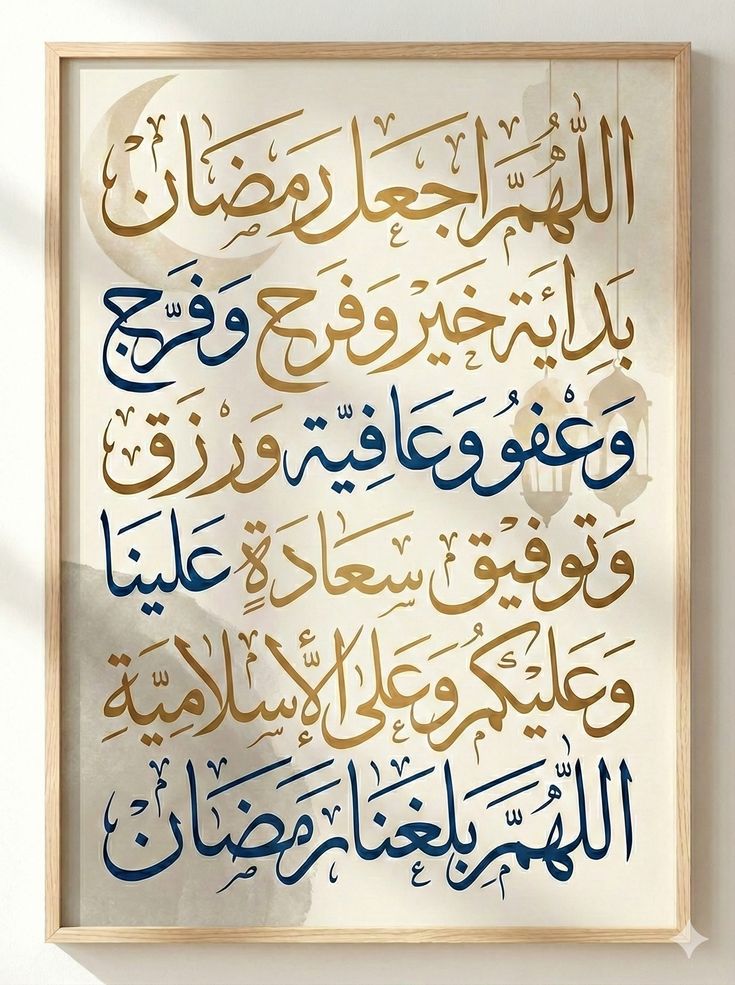 اللَّهُمَّ اجْعَل رَمَضَان
بَدِايَة خَيْر وَفَرَح وَفَرَّج
وَعْفُو وَعَافِيَّة وَرْزَق
وَتوفْيق سَعَادَةٍ عَلَينَا
وَعَليْكُم وَعَلى الأَّسلاَمِيَّةِ
اللَّهُمَّ بَلغْنَا رَمَضَان